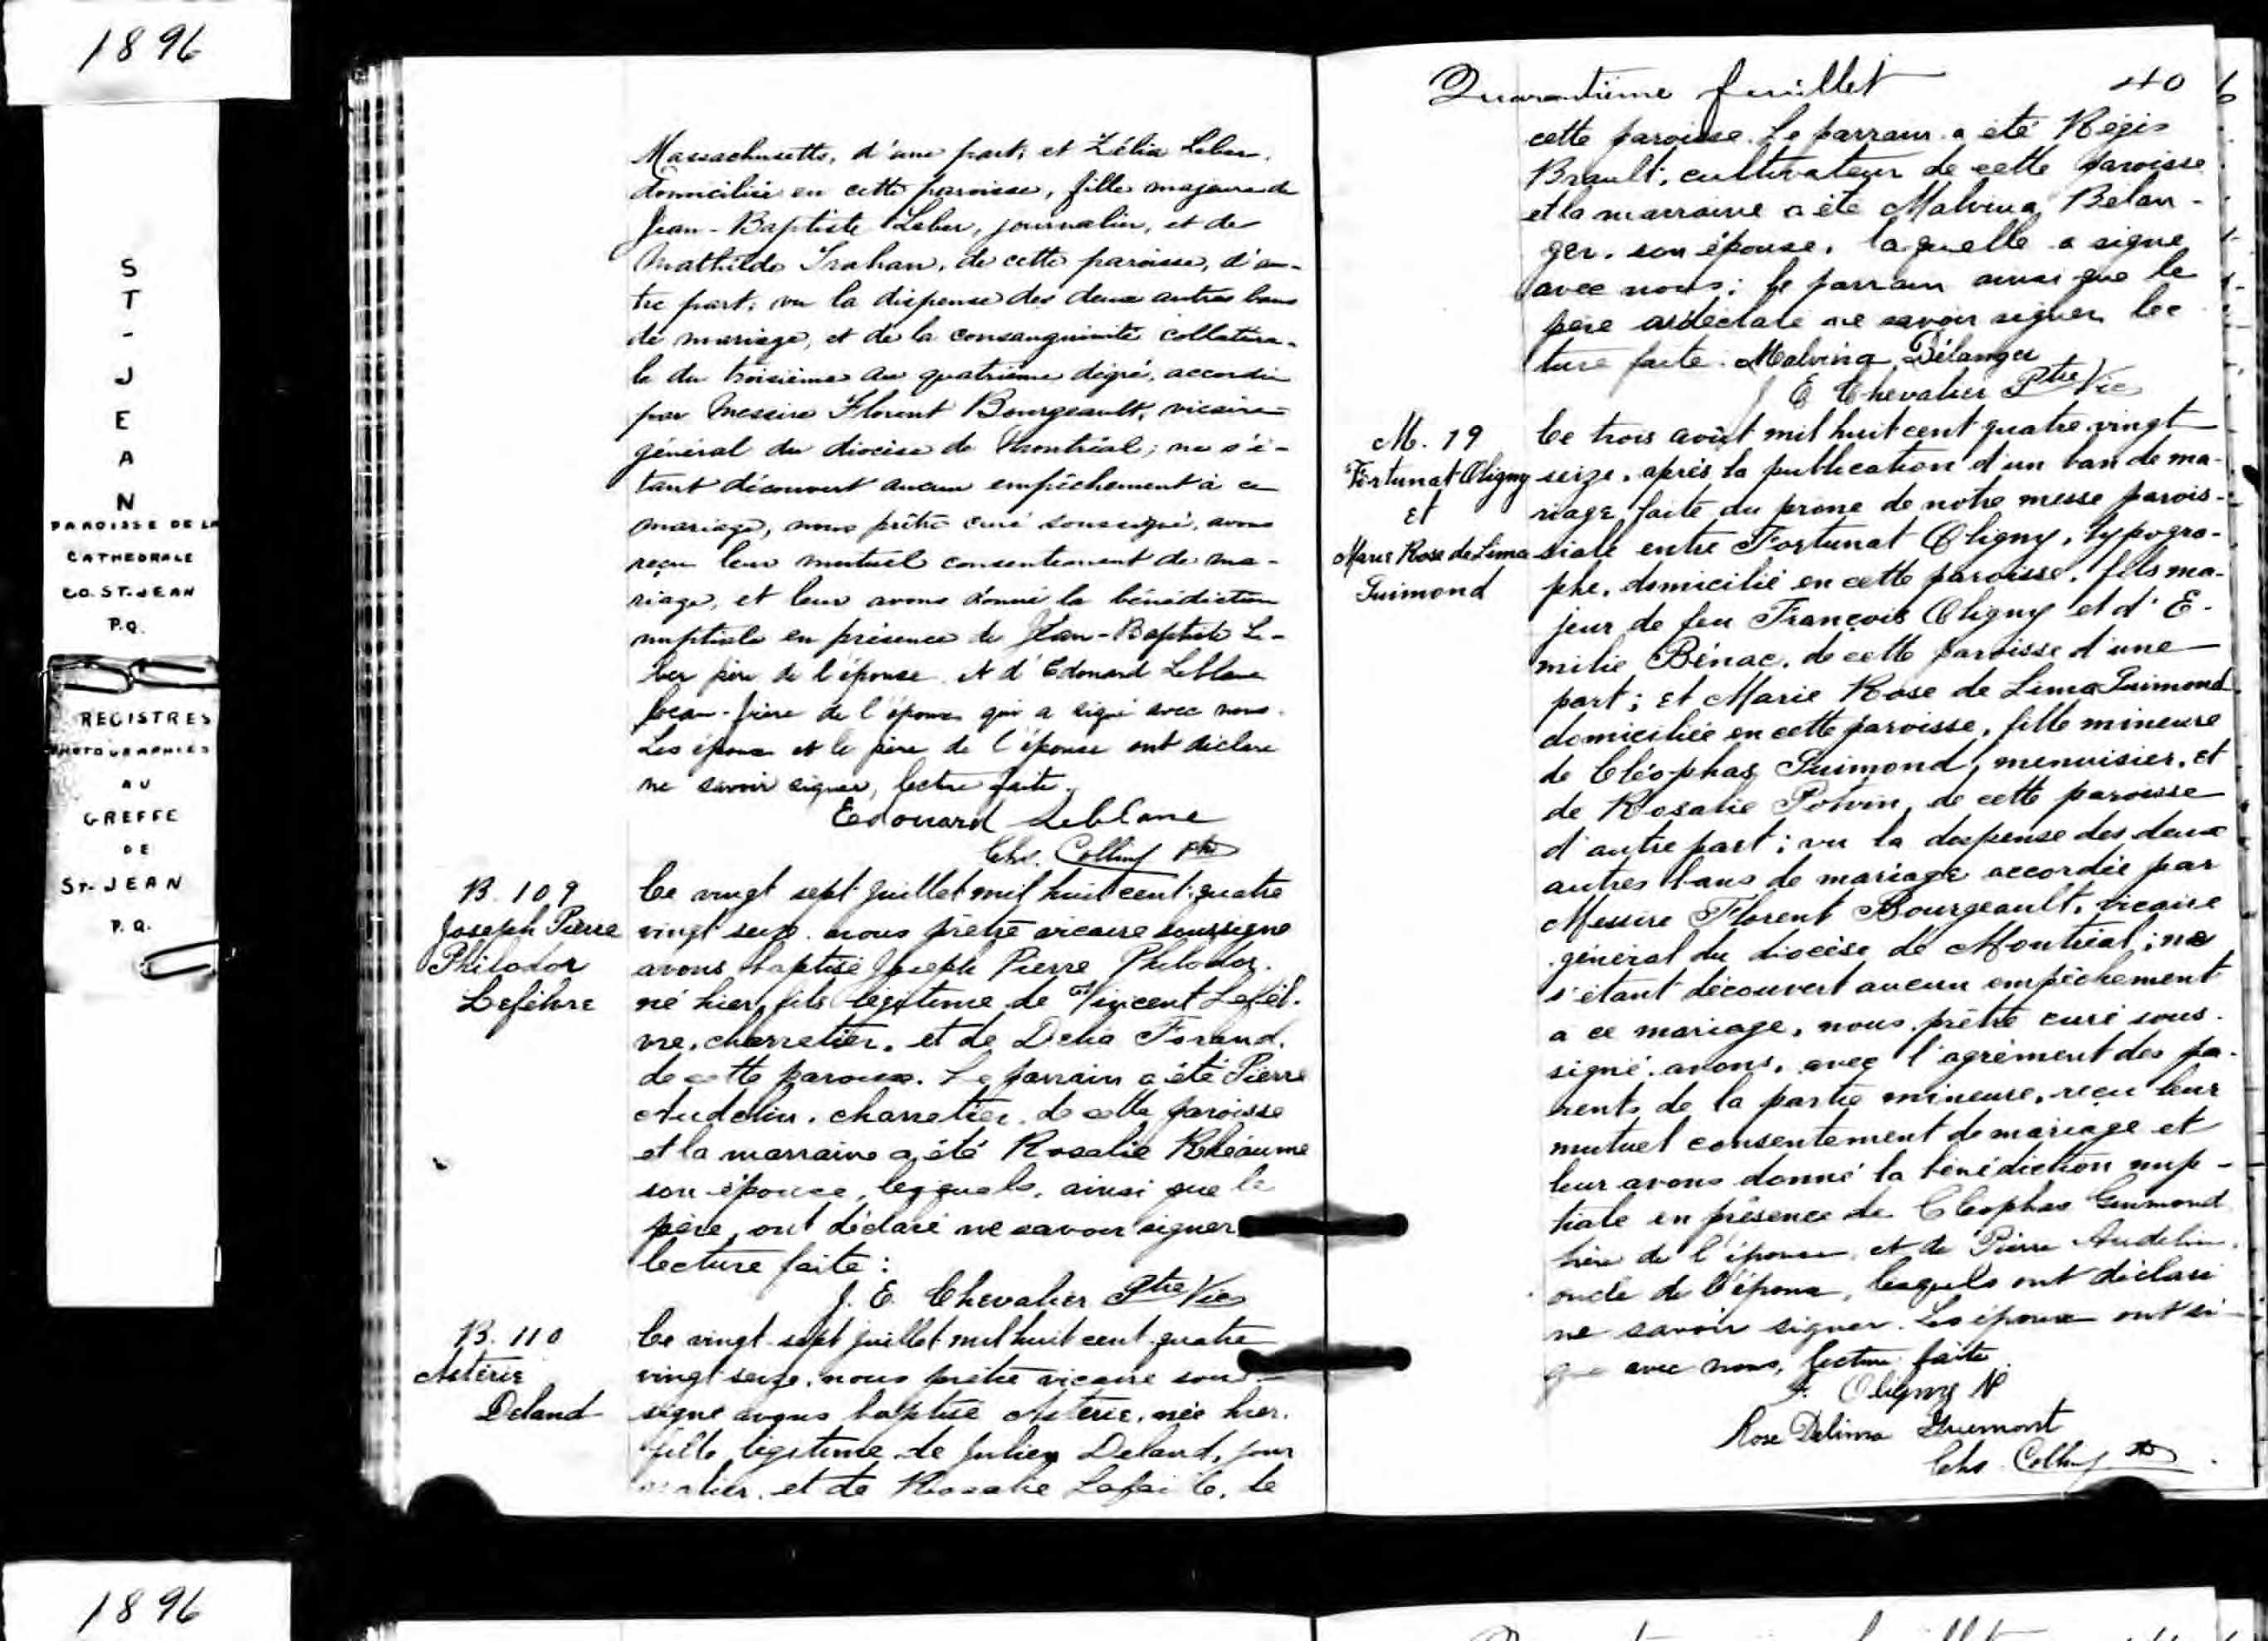 1896
S
T
-
J
E
A
N
PAROISSE DE LA
CATHEDRALE
CO. ST. JEAN
P.Q.
REGISTRES
PHOTOGRAPHIES
AU
GREFFE
DE
ST. JEAN
P.Q.
1896
Massachusetts, d'une part; et Zélia Leber,
domiciliée en cette paroisse, fille majeure de
Jean-Baptiste Leber, journalier, et de
Mathilde Trahan, de cette paroisse, d'au-
tre part; vu la dispense des deux autres bans
de mariage, et de la consanguinité collatéra-
le du troisième au quatrième dégré, accordée
par Messire Florent Bourgeault, vicaire-
général du diocèse de Montréal; ne s'é-
tant découvert aucun empêchement à ce
mariage, nous prêtre curé soussigné, avons
reçu leur mutuel consentement de ma-
riage, et leur avons donné la bénédiction
nuptiale en présence de Jean-Baptiste Le-
ber père de l'épouse et d'Edouard Leblanc
beau-frère de l'époux qui a signé avec nous.
Les époux et le père de l'épouse ont déclaré
ne savoir signer, lecture faite.
Edouard Leblanc
Chs. Collin ptre
B. 109
Joseph Pierre
Philodor
Lefebvre
Ce vingt sept juillet mil huit cent quatre
vingt seize nous prêtre vicaire soussigné
avons baptisé Joseph Pierre Philodor.
né hier, fils légitime de Vincent Lefeb-
vre, charretier, et de Delia Forand,
de cette paroisse. Le parrain a été Pierre
Audelin, charretier, de cette paroisse
et la marraine a été Rosalie Rhéaume
son épouse, lesquels, ainsi que le
père, ont déclaré ne savoir signer
lecture faite:
J. E. Chevalier Ptre Vic
B. 110
Astérie
Deland
Ce vingt-sept juillet mil huit cent quatre
vingt seize, nous prêtre vicaire sous-
signé avons baptisé Astérie, née hier,
fille légitime de Julien Deland, jour
nalier, et de Rosalie Lafaille, de
Quarantième feuillet 40
cette paroisse. Le parrain a été Régis
Brault, cultivateur de cette paroisse
et la marraine a été Malvina Bélan-
ger, son épouse, laquelle a signé
avec nous; le parrain ainsi que le
père ont déclaré ne savoir signer lec
ture faite. Malvina Bélanger
J E Chevalier Ptre Vic
M. 19
Fortunat Oligny
et
Marie Rose de Lima
Guimond
Ce trois août mil huit cent quatre vingt
seize, après la publication d'un ban de ma-
riage, faite au prône de notre messe parois-
siale entre Fortunat Oligny, typogra-
phe, domicilié en cette paroisse, fils ma-
jeur de feu François Oligny et d'E-
milie Bénac, de cette paroisse d'une
part; et Marie Rose de Lima Guimond
domiciliée en cette paroisse, fille mineure
de Cléophas Guimond, menuisier, et
de Rosalie Potvin, de cette paroisse
d'autre part; vu la dispense des deux
autres bans de mariage accordée par
Messire Florent Bourgeault, vicaire
général du diocèse de Montréal; ne
s'étant découvert aucun empêchement
a ce mariage, nous, prêtre curé sous-
signé, avons, avec l'agrément des pa-
rents de la partie mineure, reçu leur
mutuel consentement de mariage et
leur avons donné la bénédiction nup-
tiale en présence de Cléophas Guimond
père de l'épouse, et de Pierre Audelin,
oncle de l'époux, lesquels ont déclaré
ne savoir signer. Les époux ont si-
gné avec nous, lecture faite
F. Oligny
Rose Delima Guimont
Chs. Collin ptre